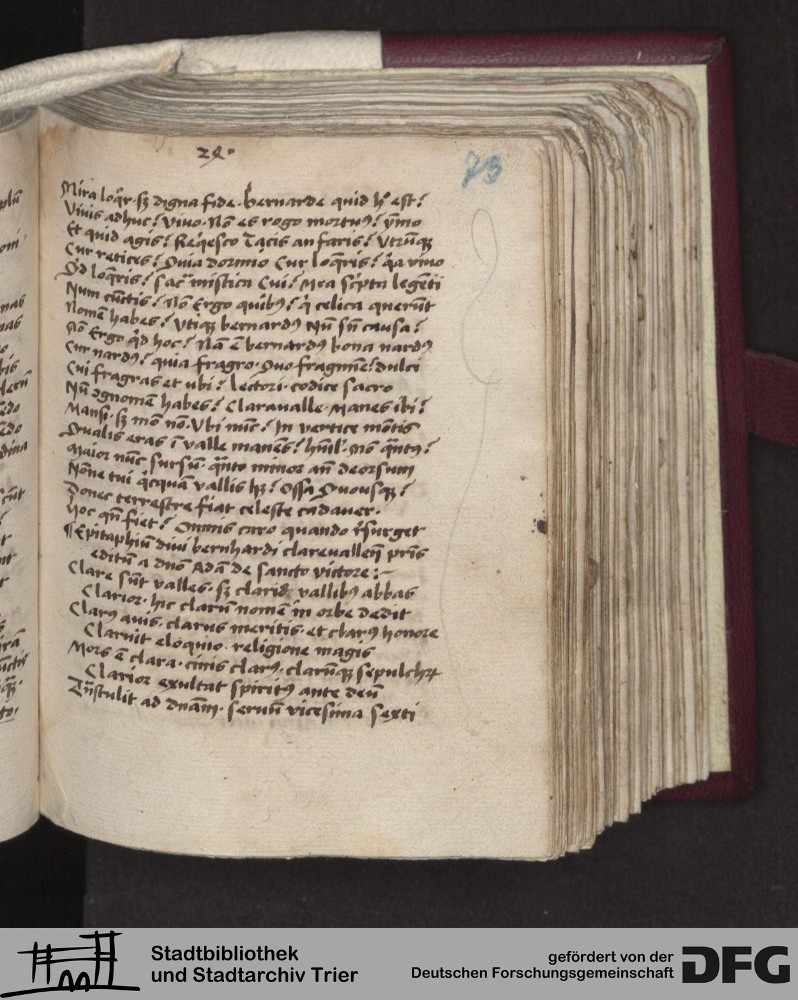 24.
73
Mira loqr· sꝫ digna fide· bernarde quid hͦ est?
Viuis adhuc? Viuo· Nō es rogo mortuꝰ? ymo
Et quid agis? Reqesco Tacis an faris? Vtrūqꝫ
Cur retices? Quia dormio Cur loqris? qa viuo
Qd loqris? sacᵃ mistica Cui? Mea scpta legēti
Num cūctis? Nō Ergo quibꝰ? q celica querūt
Nomē habes? Vtiqꝫ bernardꝰ Nū sn causa?
Nō Ergo qd hoc? Nā ē bernardꝰ bona nardꝰ
Cur nardꝰ? quia fragro· Quo fragmīe? dulci
Cui fragras et ubi? lectori· codice sacro
Nū ꝯgnomē habes? Claraualle· Manes ibi?
Mansi· sꝫ mō nō· Vbi nūc? In vertice mōtis
Qualis eras ī valle manēs? hūil· Nō qntꝰ?
Maior nūc sursū· qnto minor an deorsum
Nōne tui qcquā vallis hꝫ? Ossa Quousqꝫ?
Donec terrestre fiat celeste cadauer·
Hoc qn fiet? Omnis caro quando rsurget
¶Epitaphiū diui bernhardi clareuallen pris
editū a dno Adā de sancto victore:~
Clare sūt valles· sꝫ claris vallibꝰ abbas
Clarior· hic clarū nomē in orbe dedit
Clarꝰ auis· clarus meritis· et clarꝰ honore
Claruit eloquio· religione magis
Mors ē clara· cinis clarꝰ· clarūqꝫ sepulchꝝ
Clarior exultat spiritꝰ ante deū
ad dnām· seruū vicesima sexti
Stadtbibliothek
und Stadtarchiv Trier
gefördert von der
Deutschen Forschungsgemeinschaft
DFG